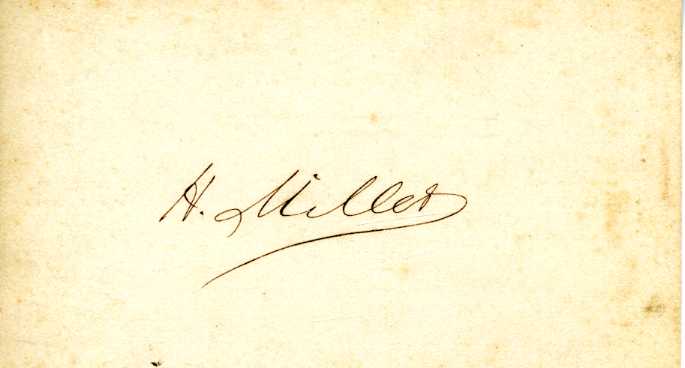 H. Miller